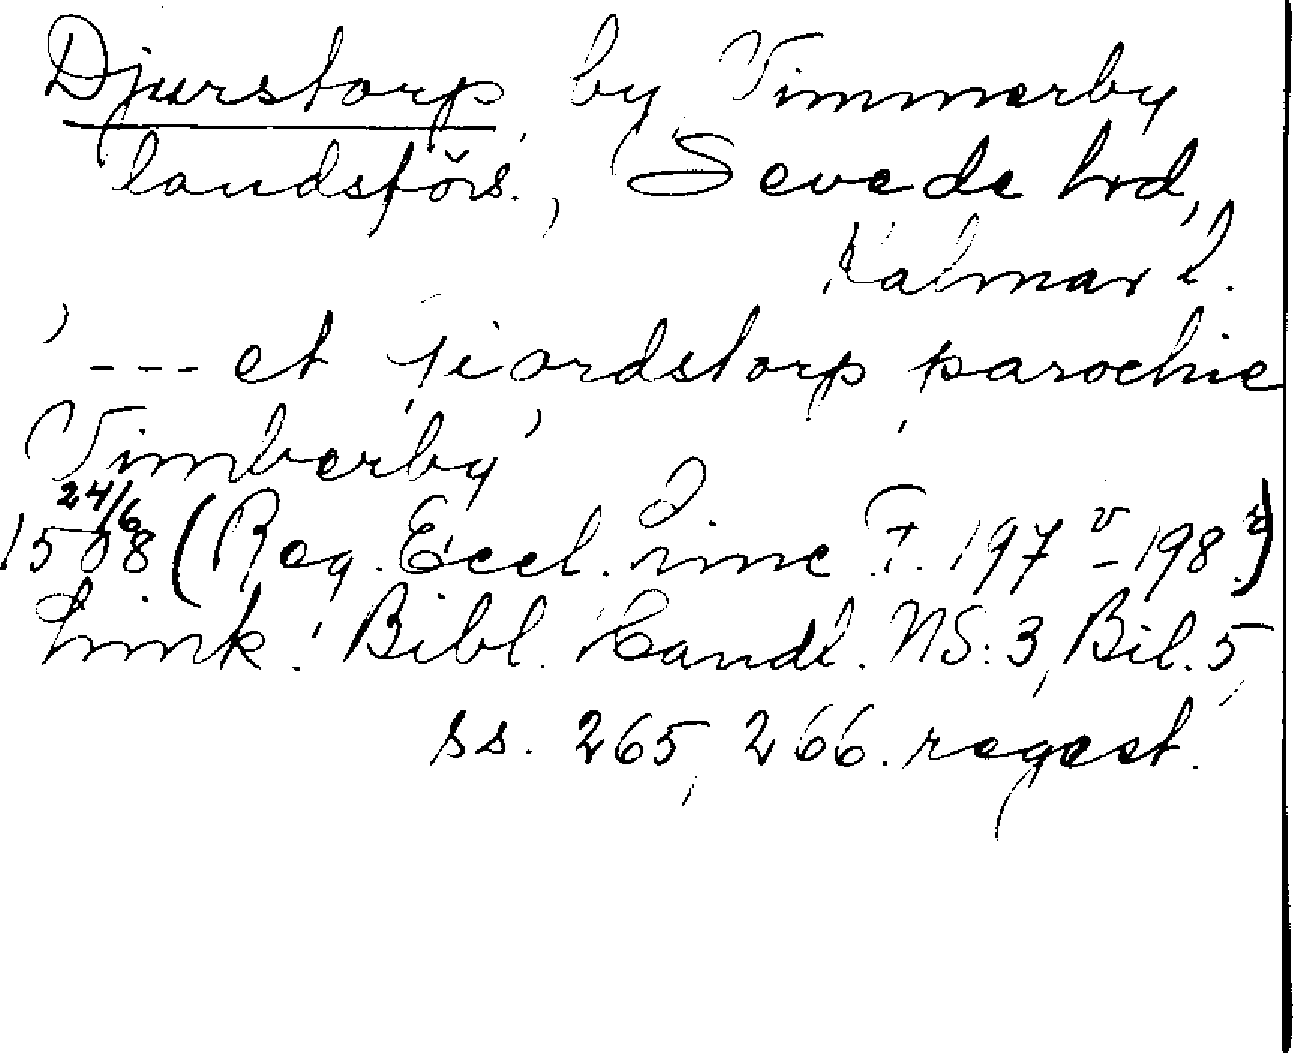 Djurstorp by Vimmerby
landsförs., Sevede hrd,
Kalmar l.
' --- et jiordstorp parochie
Vimberby'
24/6
1508 (Reg. Eccl. Linc F. 197 v - 198 r)
Link. Bibl. Handl. NS: 3, Bil. 5,
ss. 265, 266. regest.